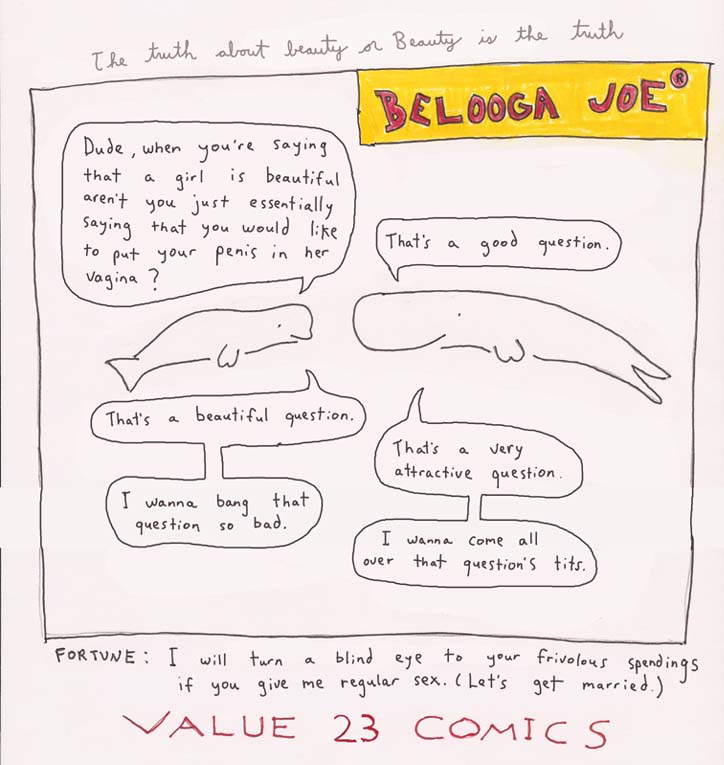 The truth about beauty or Beauty is the truth
BELOOGA JOE®
Dude, when you're saying
that a girl is beautiful
aren't you just essentially
saying that you would like
to put your penis in her
vagina?
That's a good question.
That's a beautiful question.
I wanna bang that
question so bad.
That's a very
attractive question.
I wanna come all
over that question's tits.
FORTUNE: I will turn a blind eye to your frivolous spendings
if you give me regular sex. (Let's get married.)
VALUE 23 COMICS